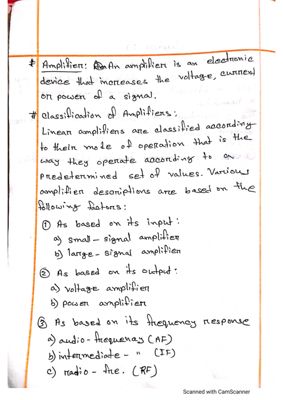 # Amplifier: An amplifier is an electronic
device that increases the voltage, current
or power of a signal.
# Classification of Amplifiers:
Linear amplifiers are classified according
to their mode of operation that is the
way they operate according to a
predetermined set of values. Various
amplifier descriptions are based on the
following factors:
① As based on its input:
a) small-signal amplifier
b) large-signal amplifier
② As based on its output:
a) voltage amplifier
b) power amplifier
③ As based on its frequency response
a) audio-frequency (AF)
b) intermediate- " (IF)
c) radio-fre. (RF)
Scanned with CamScanner